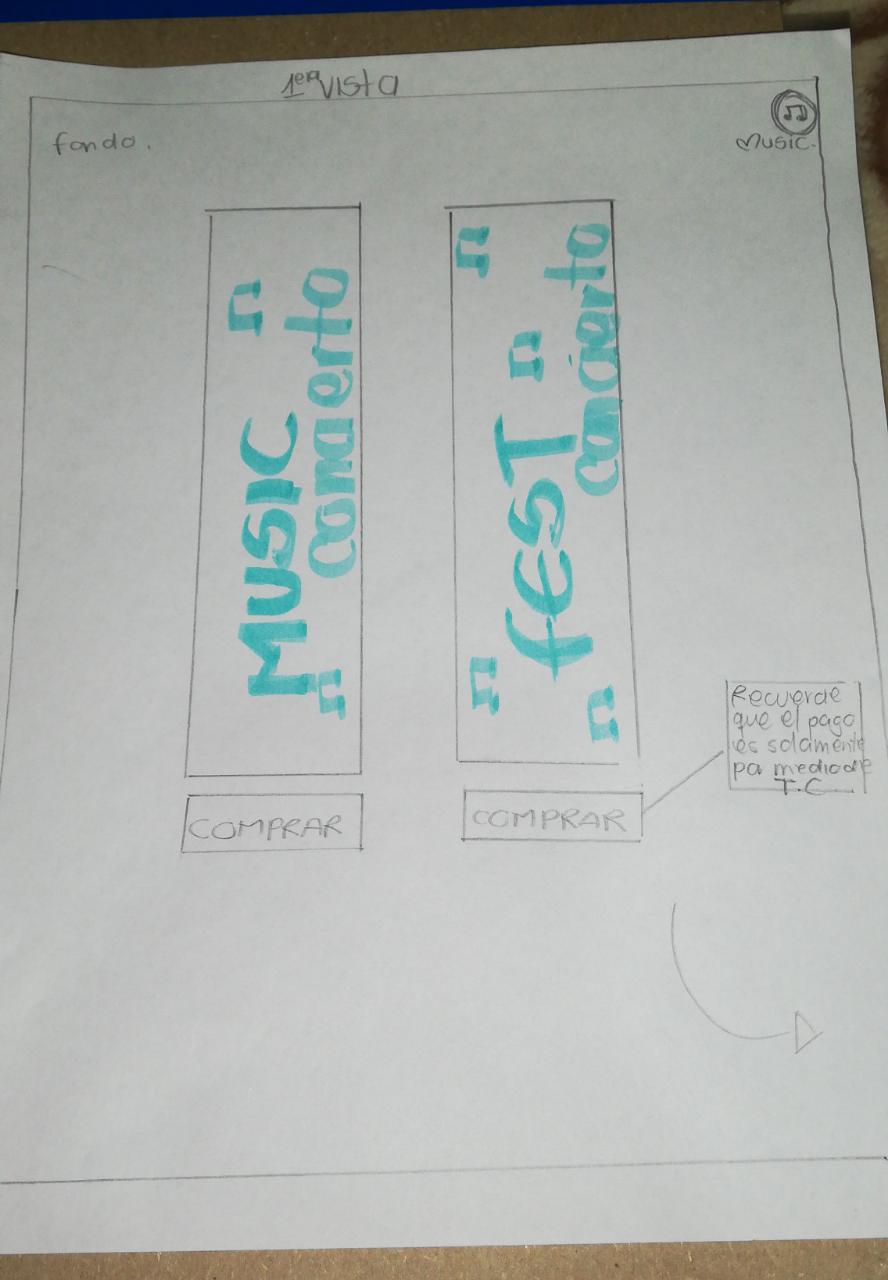 1era Vista
fondo.
Music.
MUSIC
concierto
fEST
concierto
COMPRAR
COMPRAR
Recuerde
que el pago
es solamente
por medio de
T.C